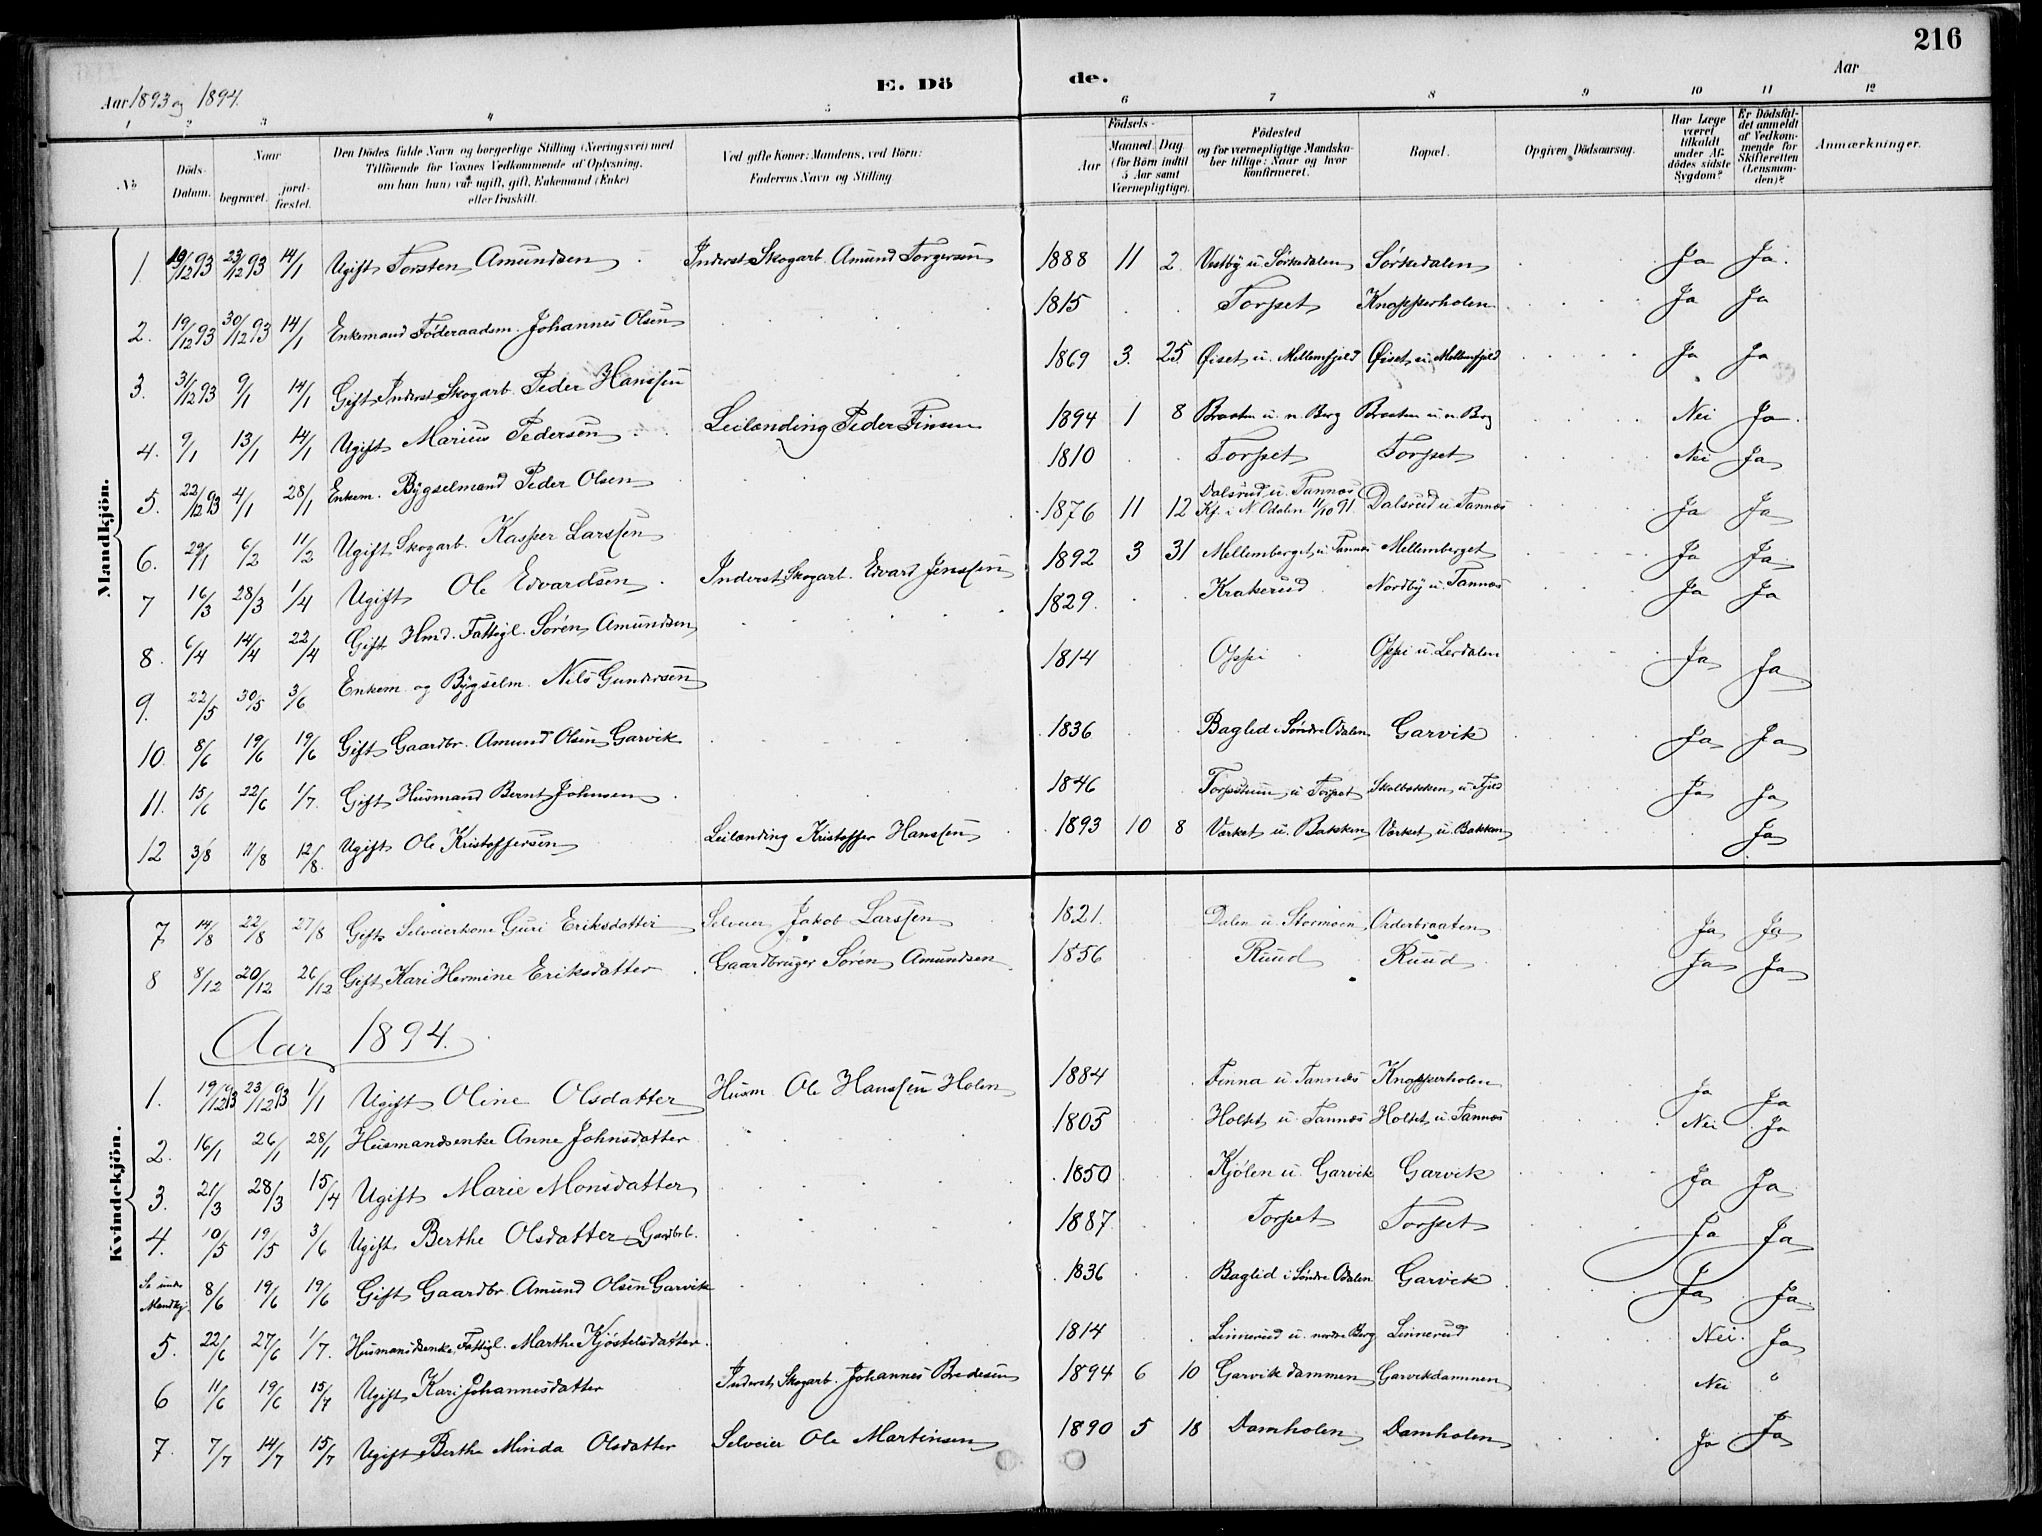 216
Aar 1893 og 1894.
E. Dö de.
Aar
1 2 3 4 5 6 7 8 9 10 11 12
No
Döds-Datum.
Naar begravet. jordfæstet.
Den Dödes fulde Navn og borgerlige Stilling (Næringsvei) med Tilföiende for Voxnes Vedkommende af Oplysning, om han (hun) var ugift, gift, Enkemand (Enke) eller fraskilt.
Ved gifte Koner: Mandens, ved Börn: Faderens Navn og Stilling.
Födsels- Aar Maaned. Dag. (for Börn indtil 5 Aar samt Værnepligtige).
Födested og for værnepligtige Mandskaber tillige: Naar og hvor konfirmeret.
Bopæl.
Opgiven Dödsaarsag.
Har Læge været tilkaldt under Afdödes sidste Sygdom?
Er Dödsfaldet anmeldt af Vedkommende for Skifteretten (Lensmanden)?
Anmærkninger.
Mandkjön.
1. 19/12 93 23/12 93 14/1 Ugift Torsten Amundsen Inderst Skogarb. Amund Torgersen 1888 11 2 Vestby u. Sörkedalen Sörkedalen Ja Ja.
2. 19/12 93 30/12 93 14/1 Enkemand Föderaadsm. Johannes Olsen 1815 Torpet Knapperholen Ja Ja
3. 31/12 93 9/1 14/1 Gift Inderst Skogarb. Peder Hanssen 1869 3. 25. Øiset u. Mellemfjeld Øiset u. Mellemfjeld Ja Ja
4. 9/1 13/1 14/1 Ugift Marius Pedersen Leilænding Peder Finsen 1894 1 8 Braaten u. n. Berg Braaten u. n. Berg Nei Ja.
5. 22/12 93 4/1 28/1 Enkem. Bygselmand Peder Olsen 1810 Torpet Torpet Nei Ja
6. 29/1 6/2 11/2 Ugift Skogarb. Kasper Larssen 1876 11 12 Dalsrud u. Tannæs Kf. i N. Odalen 11/10 91. Dalsrud u. Tannæs Ja Ja
7 16/3 28/3 1/4 Ugift Ole Edvardsen Inderst Skogarb. Edvard Jenssen 1892 3 31 Mellemberget u. Tannæs Mellemberget Ja Ja
8. 6/4 14/4 22/4 Gift Hmd. Fattigl. Sören Amundsen 1829. Krakerud Nordby u. Tannæs Ja Ja
9. 22/5 30/5 3/6 Enkem. og Bygselm. Nils Gundersen 1814 Oppi Oppi u. Lerdalen Ja Ja
10 8/6 19/6 19/6 Gift Gaardbr. Amund Olsen Garvik 1836 Baglid i Søndre Odalen Garvik Ja Ja
11. 15/6 22/6 1/7. Gift Husmand Bernt Johnsen 1846 u. Torpet Skolbakken u. Fjeld Ja Ja
12 3/8 11/8 12/8. Ugift Ole Kristoffersen Leilænding Kristoffer Hanssen 1893 10 8 Værket u. Bakken Værket u. Bakken Ja
Kvindekjön.
7 14/8 22/8 27/8 Gift Selveierkone Guri Eriksdatter Selveier Jakob Larssen 1821. Dalen u. Stormoen Orderbraaten Ja Ja
8 8/12 20/12 26/12 Gift Kari Hermine Eriksdatter Gaardbruger Sören Amundsen 1856 Ruud Ruud Ja Ja
Aar 1894.
1. 19/12 93 23/12 93 1/1 Ugift Oline Olsdatter Husm. Ole Hanssen Holen 1884 Finna u. Tannæs Knapperholen Ja Ja
2. 16/1 26/1 28/1 Husmandsenke Anne Johnsdatter 1805 Holtet u. Tannæs Holtet u. Tannæs Nei Ja
3. 21/3 28/3 15/4 Ugift Marie Monsdatter 1850 Kjölen u. Garvik Garvik Ja Ja
4. 10/5 19/5 3/6 Ugift Berthe Olsdatter Gaardbr. b. 1887 Torpet Torpet Ja Ja
Se under Mandkj. 8/6 19/6 19/6 Gift Gaardbr. Amund Olsen Garvik 1836 Baglid i Søndre Odalen Garvik Ja Ja
5. 22/6 27/6 1/7. Husmandsenke, Fattigl. Marthe Kjöstelsdatter 1814 Linnerud u. nordre Berg Linnerud Nei. Ja
6 11/6 19/6 15/7 Ugift Kari Johannesdatter Inderst Skogarb. Johannes Bredesen 1894 6 10 Garvikdammen Garvikdammen Nei "
7. 7/7 14/7 15/7 Ugift Berthe Minda Olsdatter Selveier Ole Martinsen 1890 5 18 Damholen Damholen Ja Ja